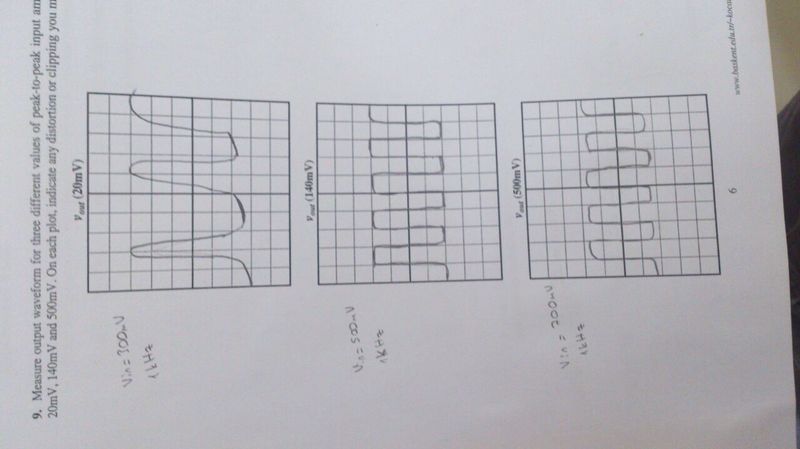 9. Measure output waveform for three different values of peak-to-peak input am
20mV, 140mV and 500mV. On each plot, indicate any distortion or clipping you m
vout (20mV)
Vin = 300mV
1kHz
vout (140mV)
Vin = 500mV
1kHz
vout (500mV)
Vin = 200mV
1kHz
6